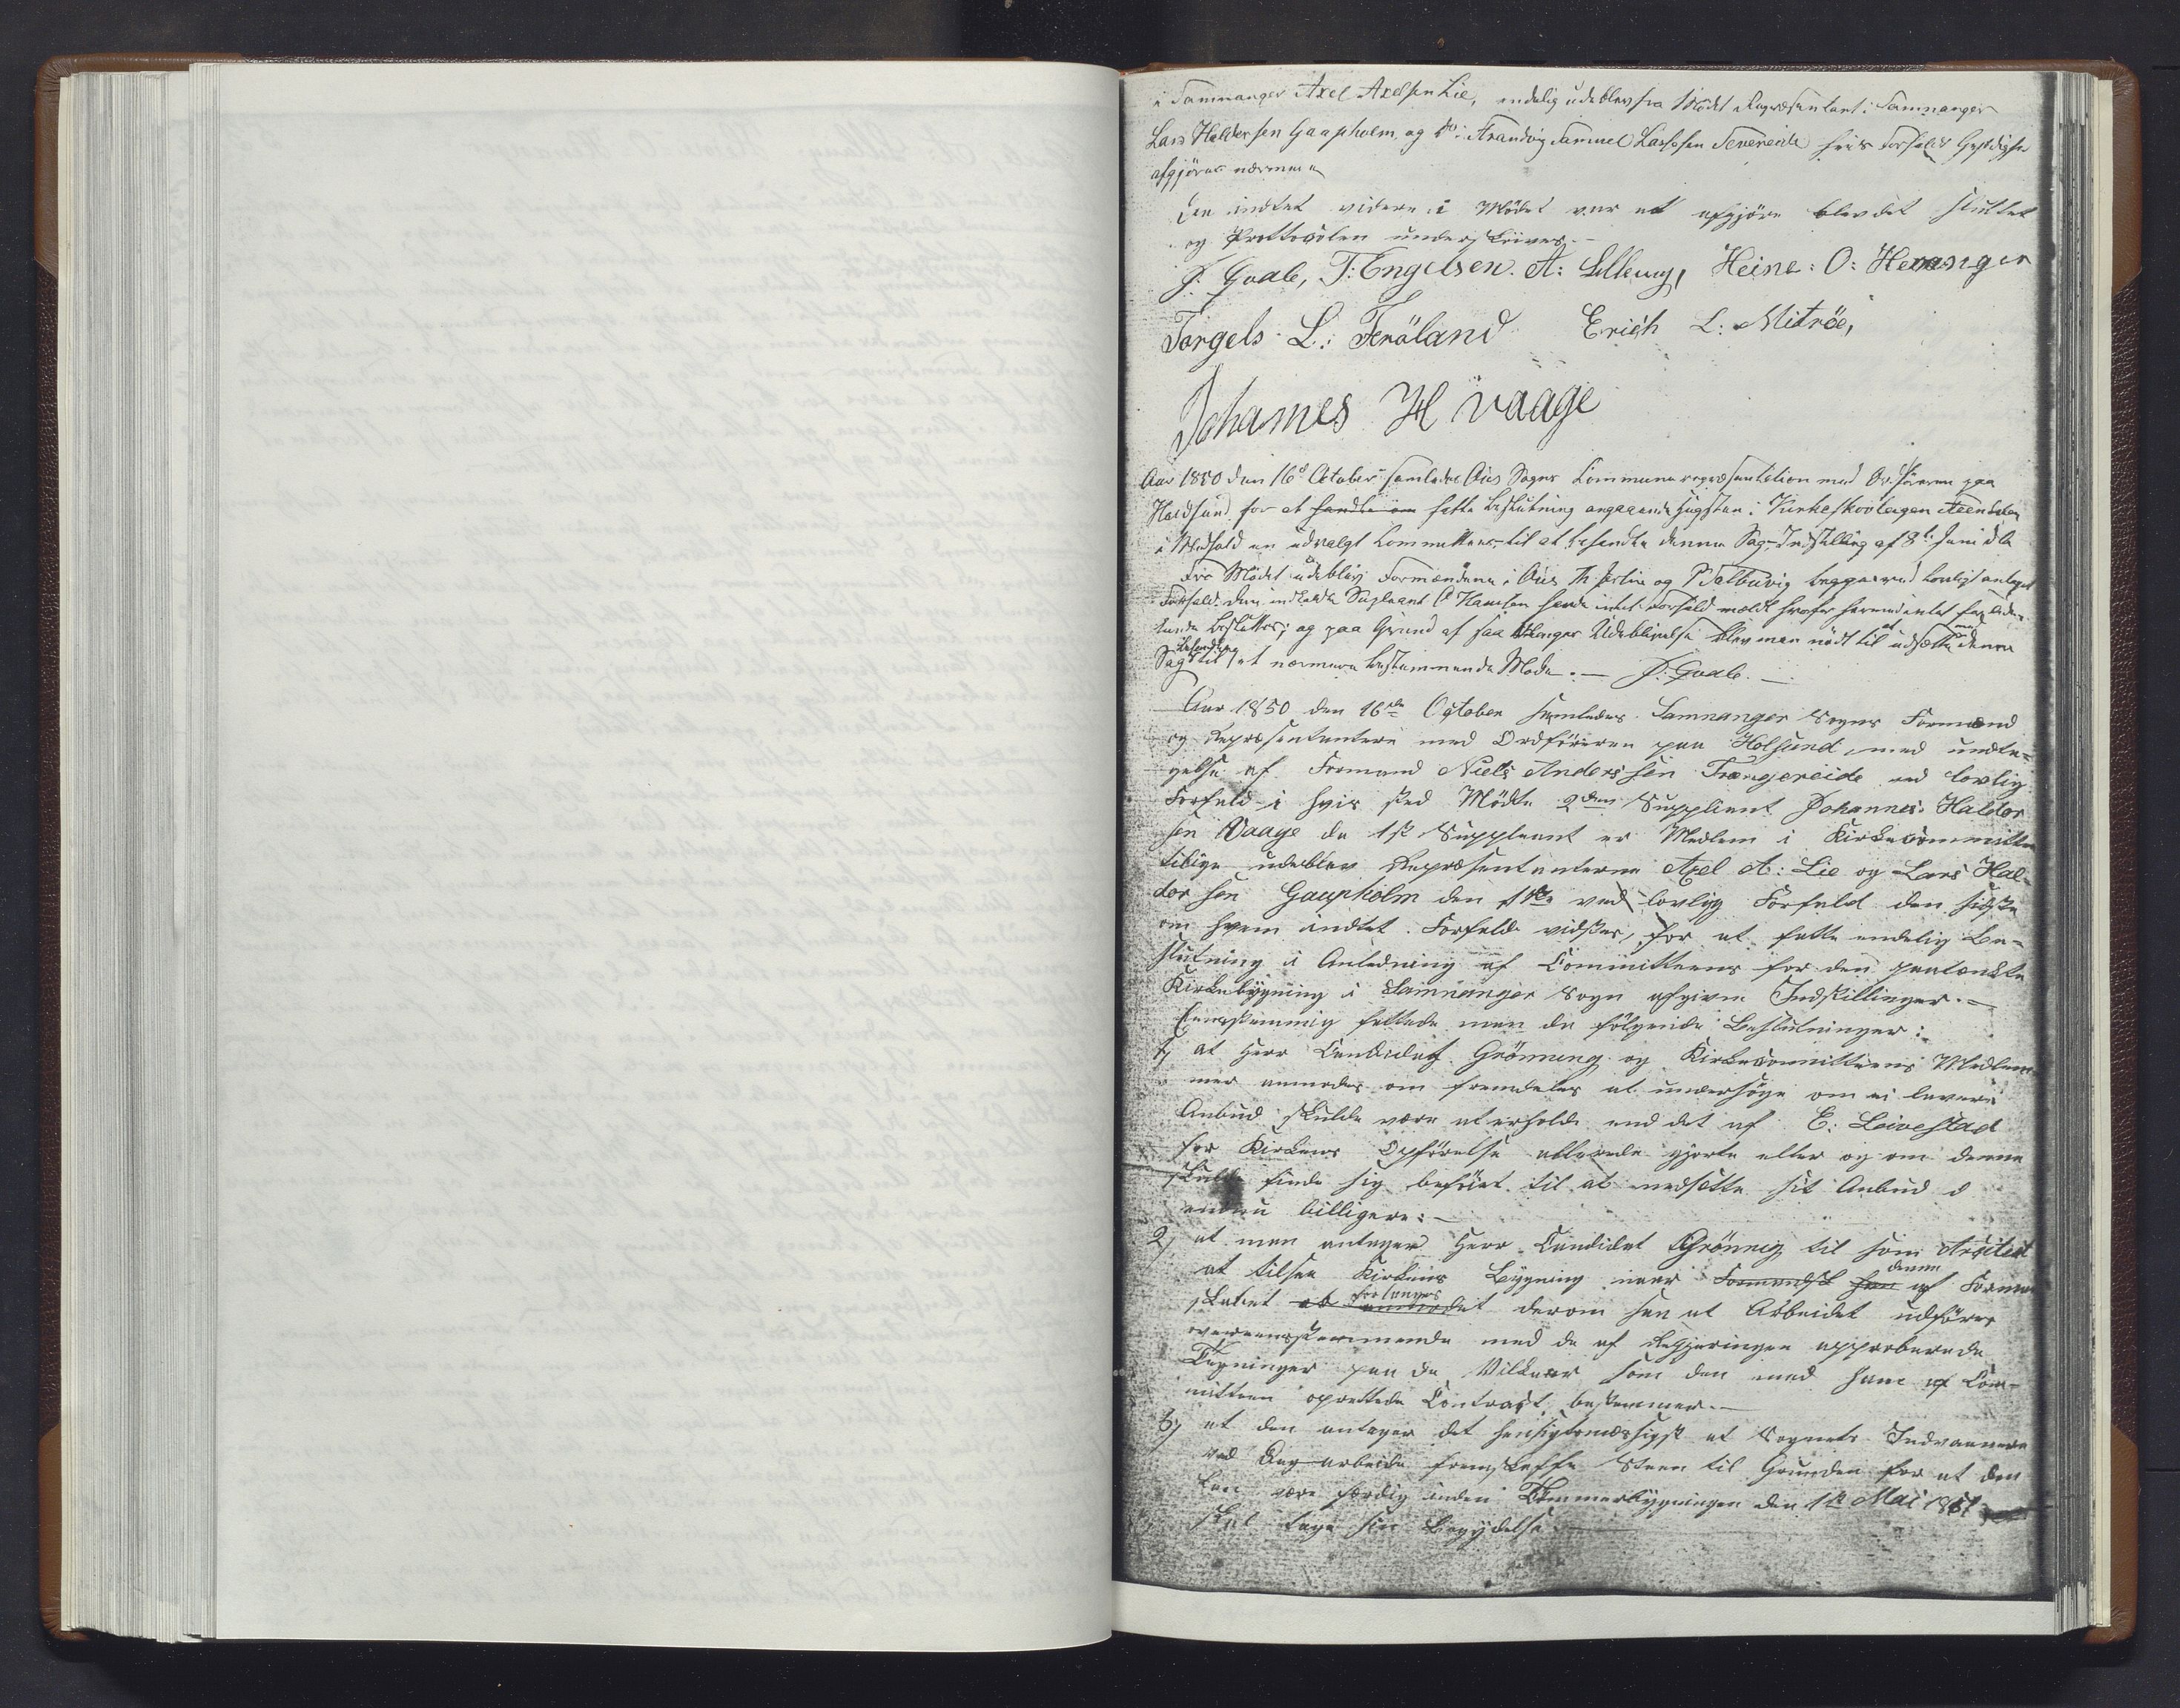 i Samnanger Axel Axelsen Lie, endelig udeblev fra Mødet Repræsentant i Samnanger
Lars Haldorsen Gaupholm og do i Strandvig Samuel Lassesen Tevereide hvis Forfalds Gyldighed
afgjöres nærmere
Da indtet videre i Mödet var at afgjöre blev det sluttet
og Prottocolen underskrives.-
J: Godle, T: Engelsen. A: Lilleny, Heine: O: Hevanger
Torgels L: Teröland Erich L: Mitröe,
Johannes H vaage
Aar 1850 den 16d October samledes Ous Sogns Communerepræsentation med Ordföreren paa
Holdsund for at handle om fatte Beslutning angaaende Hugsten i Kirkeskovteigen
i Medhold en udvalgt Committees til at behandle denne Sag, Indstilling af 8de Juni d. A.
Fra Mödet udeblev Formændene i Ous og begge ved lovligt anlagt
Forfald. Den indkaldte Supleant O Hansen havde intet Forfald meldt hvorfor herved intet
beslattes; og paa Grund af saa Manges Udeblivelse blev man nödt til at udsætte med denne
Sags Behandling til et nærmere bestemmende Møde. — J: Godle. —
Aar 1850 den 16de October samledes Samnanger Sogns Formænd
og Repræsentantere med Ordföreren paa Holsund, med undta-
gelse af Formand Niels Anderssen Trængereide ved lovlig
Forfald i hvis sted Mödte 2den Supplient Johannes Haldor
sen Vaage da 1st Suppleant er Medlem i Kirkecommitteen
tilige udeblev Repræsentanterne Axel A: Lie og Lars Hal-
dorsen Gaupholm den 1ste ved lovlig Forfald den sidste
om hvem indtet Forfald vidstes, for at fatte endelig Be-
slutning i Anledning af Committeens for den paatænkte
Kirkebygning i Samnanger Sogn afgivne Indstillinger. —
Eenstemmig fattede man da fölgende Beslutninger:
1, at Herr Candidat Grönning og Kirkecommitteens Medlem-
mer anmodes om fremdeles at undersöge om ei lavere
Anbud skulde være at erholde end det af E: Leivestad
for Kirkens Opförelse allerede gjorte eller og om denne
skulde finde sig beföiet til at nedsætte sit Anbud
endnu billigere: —
2, at man antager Herr Candidat Grönning til som Arcitect
at tilsee Kirkens Bygning naar Formandsk han denne af Formand-
skabet forlanges derom saa at Arbeidet udföres
overeensstemmende med de af Regjeringen approberede
Tegninger paa de Vilkaar som den med ham af Com-
mitteen oprettede Contract bestemmer. —
3, at den antager det hensigtsmæssigst at Sognets Indvaanere
ved Dagarbeide fremskaffe Steen til Grunden for at den
kan være færdig inden Tömmerbygningen den 1te Mai 1851
skal tage sin Begyndelse. —